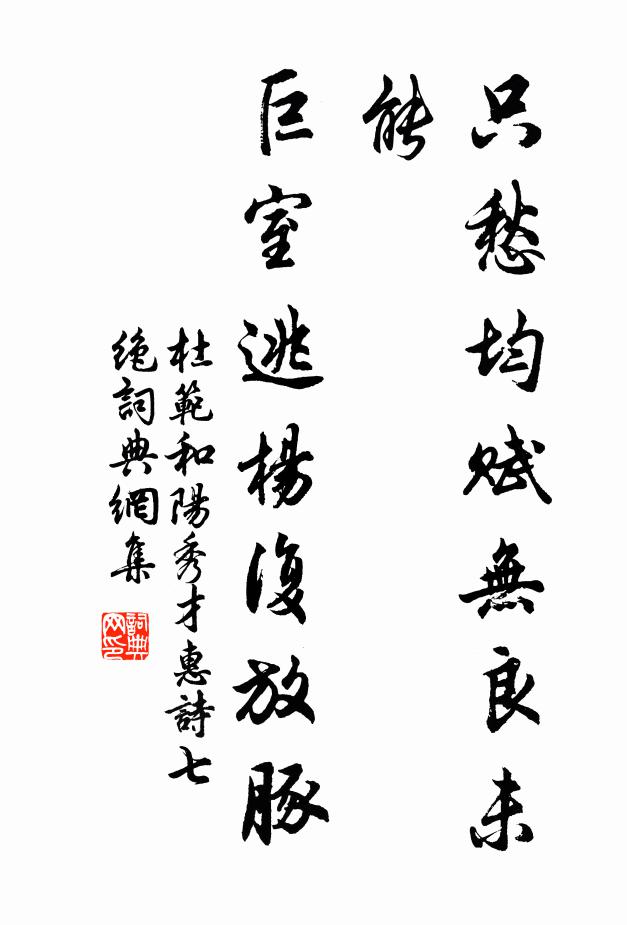 只愁均賦無良未
能
巨室逃楊復放豚
杜範和陽秀才惠詩七
絶詞典網集
詞典
网印